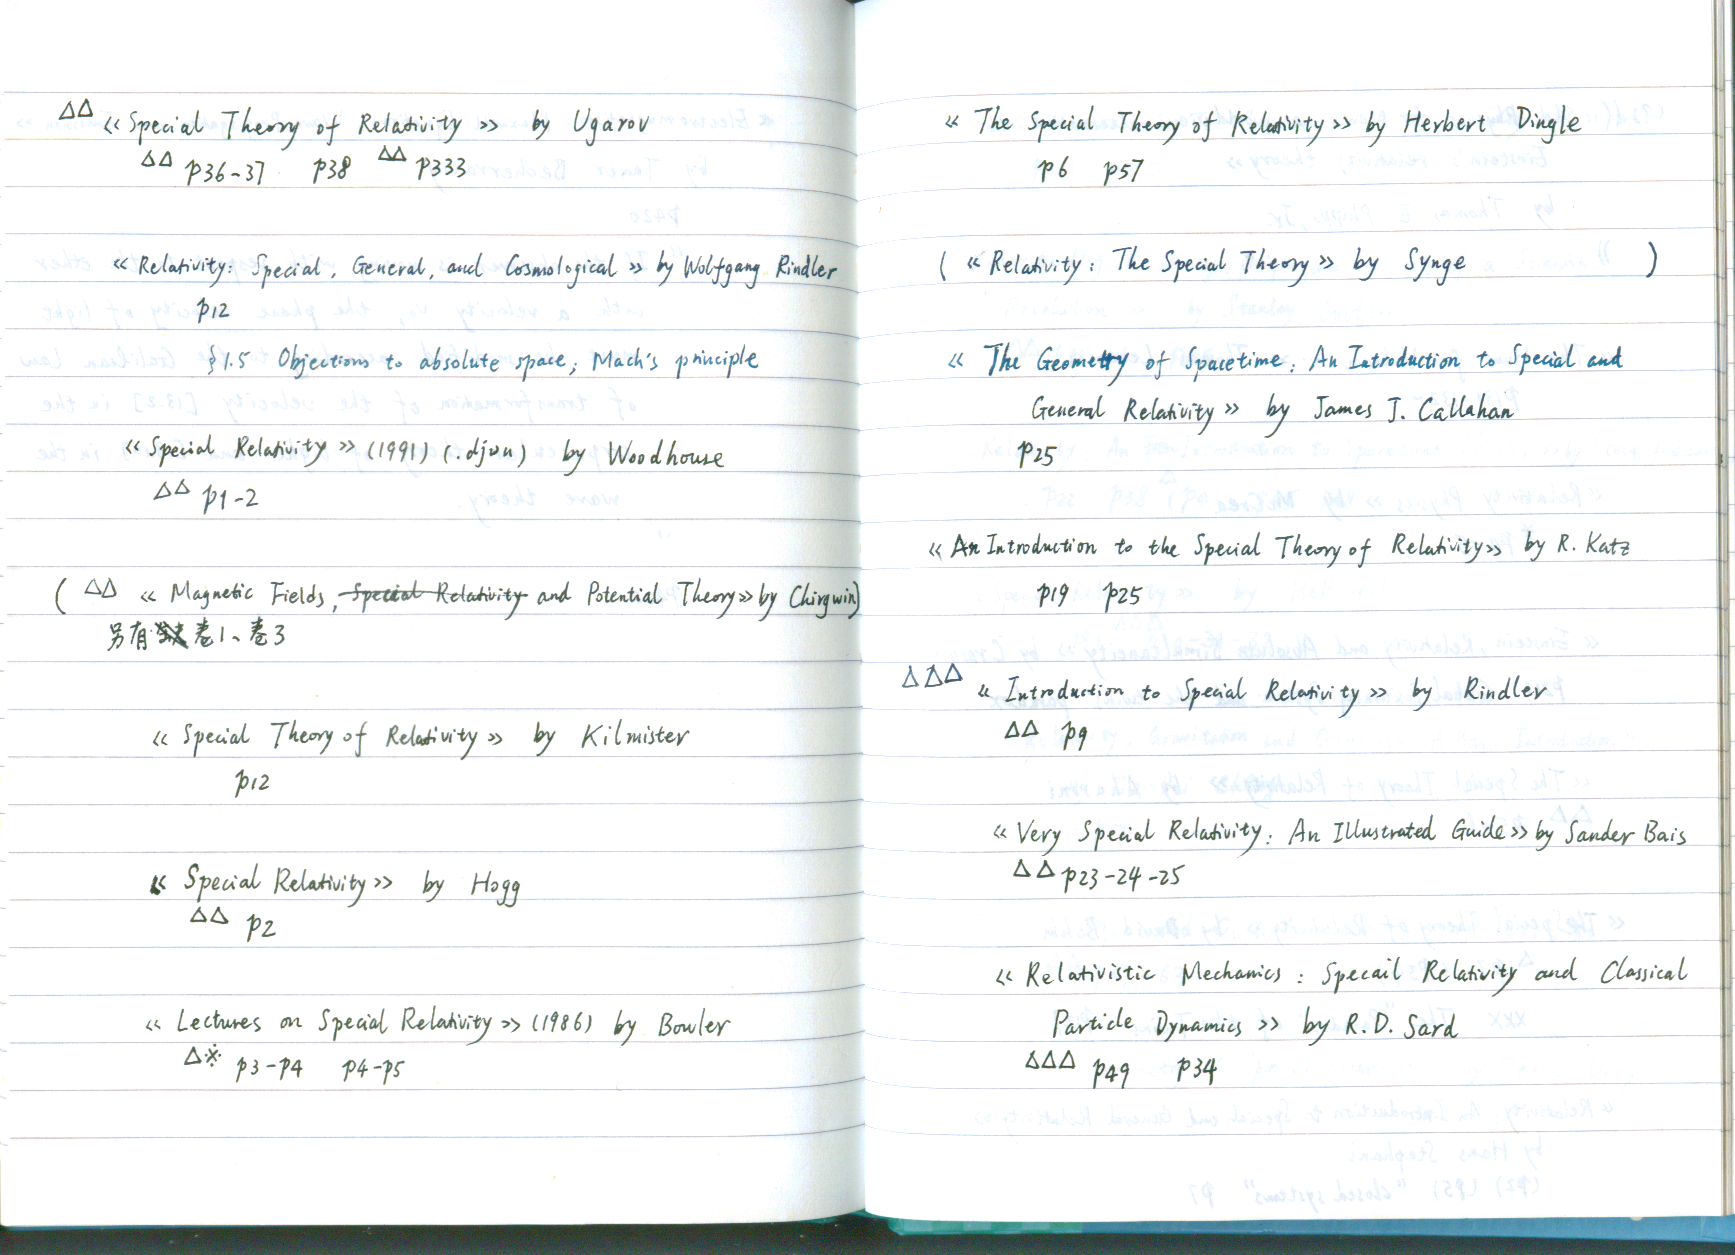 △△ «Special Theory of Relativity» by Ugarov
△△ p36-37 p38 △△ p333
«Relativity: Special, General, and Cosmological» by Wolfgang Rindler
p12
§1.5 Objections to absolute space; Mach's principle
«Special Relativity» (1991) (.djvu) by Woodhouse
△△ p1-2
( △△ «Magnetic Fields, Special Relativity and Potential Theory» by Chirgwin)
另有 卷1、卷3
«Special Theory of Relativity» by Kilmister
p12
«Special Relativity» by Hogg
△△ p2
«Lectures on Special Relativity» (1986) by Bowler
△※ p3-p4 p4-p5
«The Special Theory of Relativity» by Herbert Dingle
p6 p57
( «Relativity: The Special Theory» by Synge )
«The Geometry of Spacetime: An Introduction to Special and
General Relativity» by James J. Callahan
p25
«An Introduction to the Special Theory of Relativity» by R. Katz
p19 p25
△△△ «Introduction to Special Relativity» by Rindler
△△ p9
«Very Special Relativity: An Illustrated Guide» by Sander Bais
△△ p23-24-25
«Relativistic Mechanics: Specail Relativity and Classical
Particle Dynamics» by R.D. Sard
△△△ p49 p34